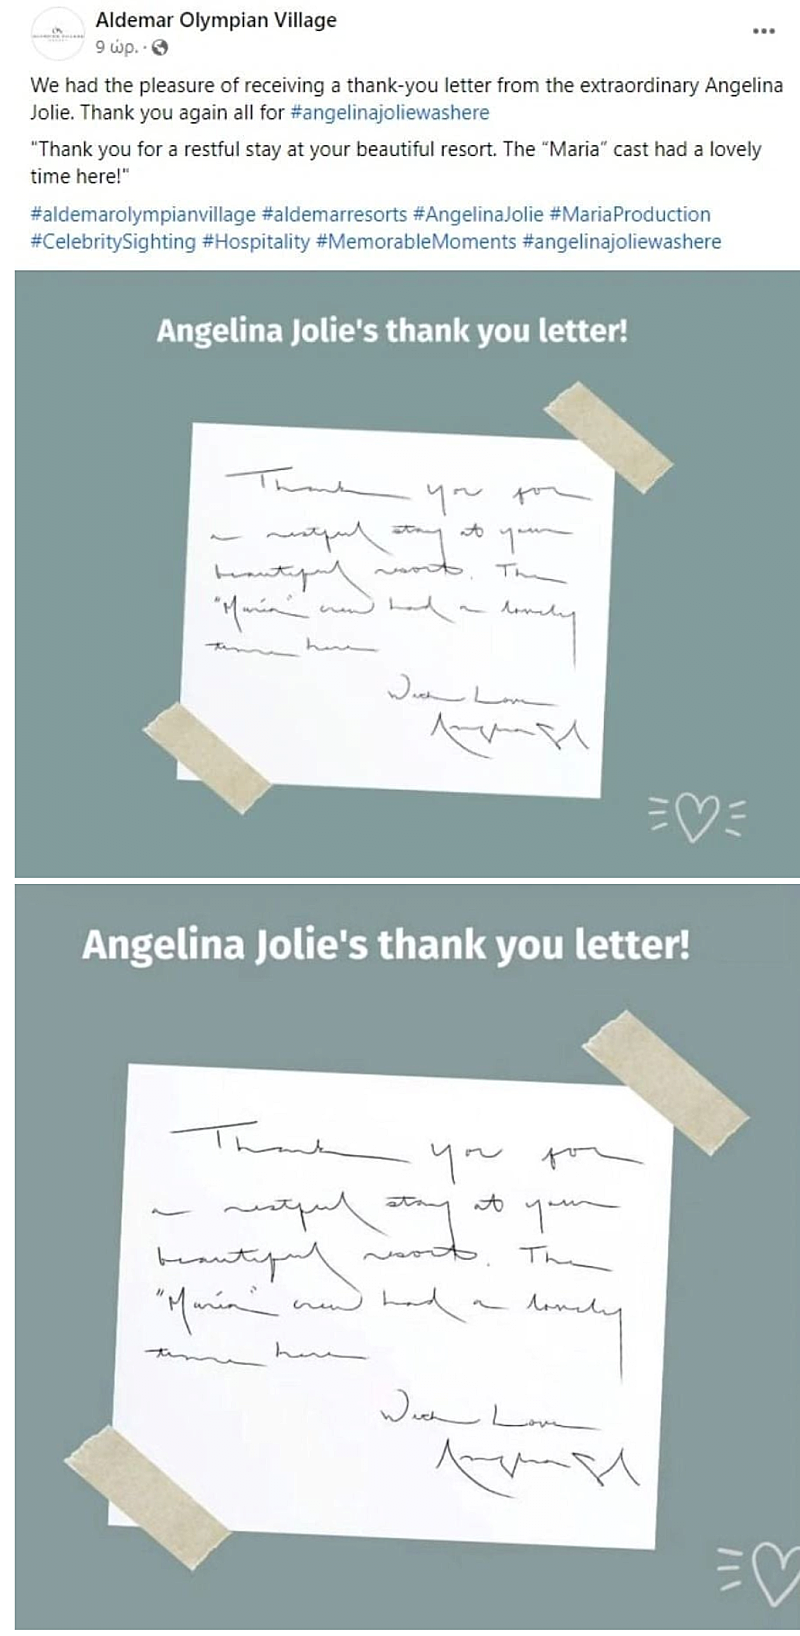 Aldemar Olympian Village
9 ώρ. ·
We had the pleasure of receiving a thank-you letter from the extraordinary Angelina
Jolie. Thank you again all for #angelinajoliewashere
"Thank you for a restful stay at your beautiful resort. The “Maria” cast had a lovely
time here!"
#aldemarolympianvillage #aldemarresorts #AngelinaJolie #MariaProduction
#CelebritySighting #Hospitality #MemorableMoments #angelinajoliewashere
Angelina Jolie's thank you letter!
Thank you for
a restful stay at your
beautiful resort. The
"Maria" crew had a lovely
time here
With Love
Angelina Jolie's thank you letter!
Thank you for
a restful stay at your
beautiful resort. The
"Maria" crew had a lovely
time here
With Love